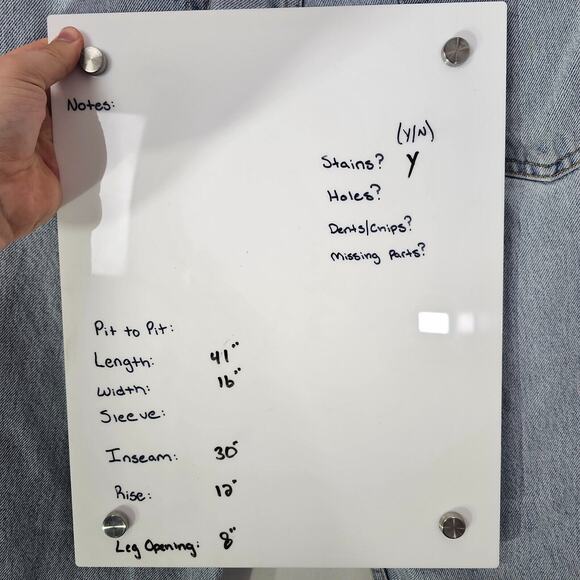 Notes:
(Y/N)
Stains? Y
Holes?
Dents/Chips?
Missing Parts?
Pit to Pit:
Length: 41"
Width: 16"
Sleeve:
Inseam: 30"
Rise: 12"
Leg Opening: 8"